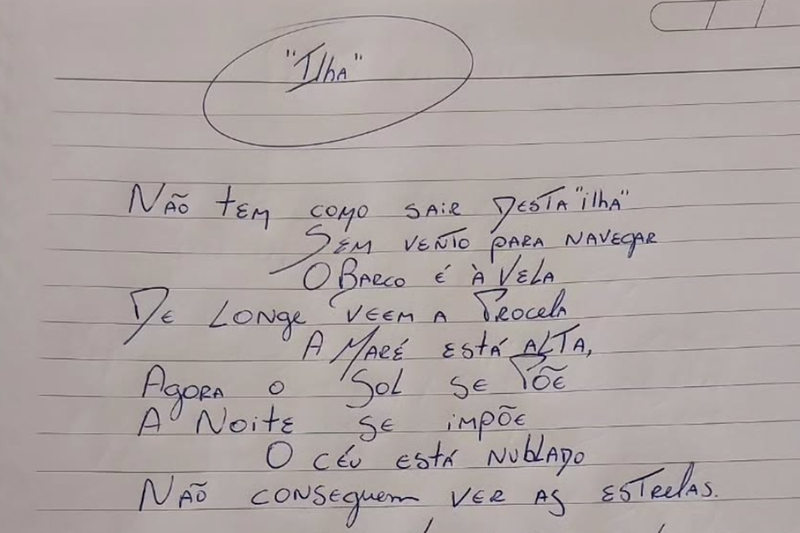 "Ilha"
Não tem como sair desta "ilha"
Sem vento para navegar
O Barco é à Vela
De longe veem a Procela
A Maré está alta,
Agora o Sol se Põe
A Noite se impõe
O céu está nublado
Não conseguem ver as estrelas.